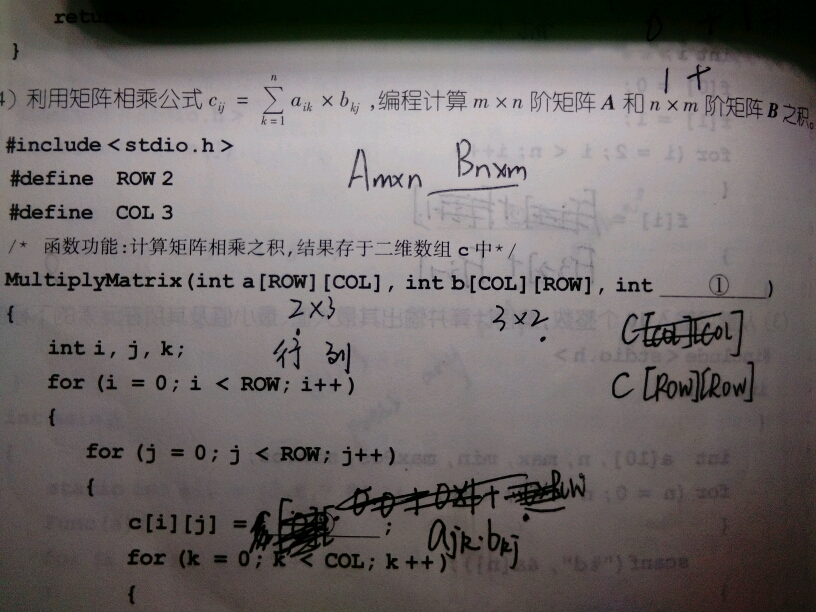 }
4) 利用矩阵相乘公式 c_ij = Σ_{k=1}^{n} a_ik × b_kj ,编程计算 m × n 阶矩阵 A 和 n × m 阶矩阵 B 之积。
#include<stdio.h>
Amxn Bnxm
#define ROW 2
#define COL 3
/* 函数功能:计算矩阵相乘之积,结果存于二维数组 c 中*/
MultiplyMatrix(int a[ROW][COL], int b[COL][ROW], int ① )
{
2×3
3×2
C[COL][COL]
int i, j, k;
行 列
for (i = 0; i < ROW; i++)
C[ROW][ROW]
{
for (j = 0; j < ROW; j++)
{
c[i][j] = ;
ajk·bkj
for (k = 0; k < COL; k++)
{